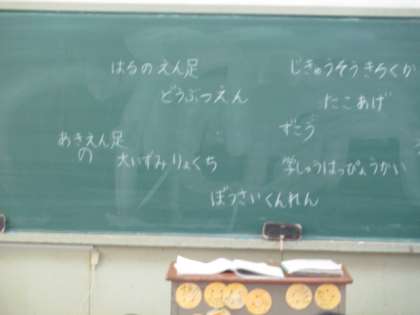 はるのえん足
どうぶつえん
じきゅうそうきろくか
たこあげ
ずこう
あきえん足
の
大いずみりょくち
学しゅうはっぴょうかい
ぼうさいくんれん